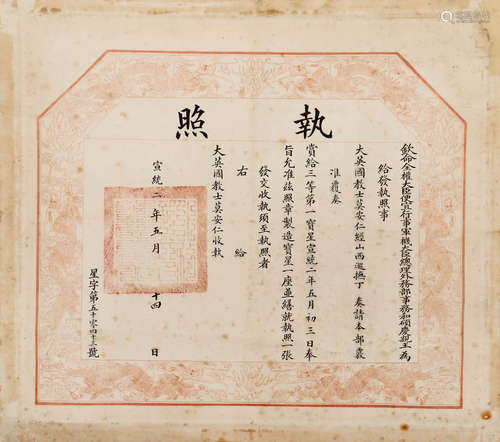 執照
欽命全權大臣便宜行事軍機大臣總理外務部事務和碩慶親王為
給發執照事
大英國教士莫安仁經山西巡撫丁奏請本部覈
准覆奏
賞給三等第一寶星宣統二年五月初三日奉
旨允准茲照章製造寶星一座並繕就執照一張
發交收執須至執照者
右給
大英國教士莫安仁收執
宣統二年五月十四日
星字第五十零四十三號